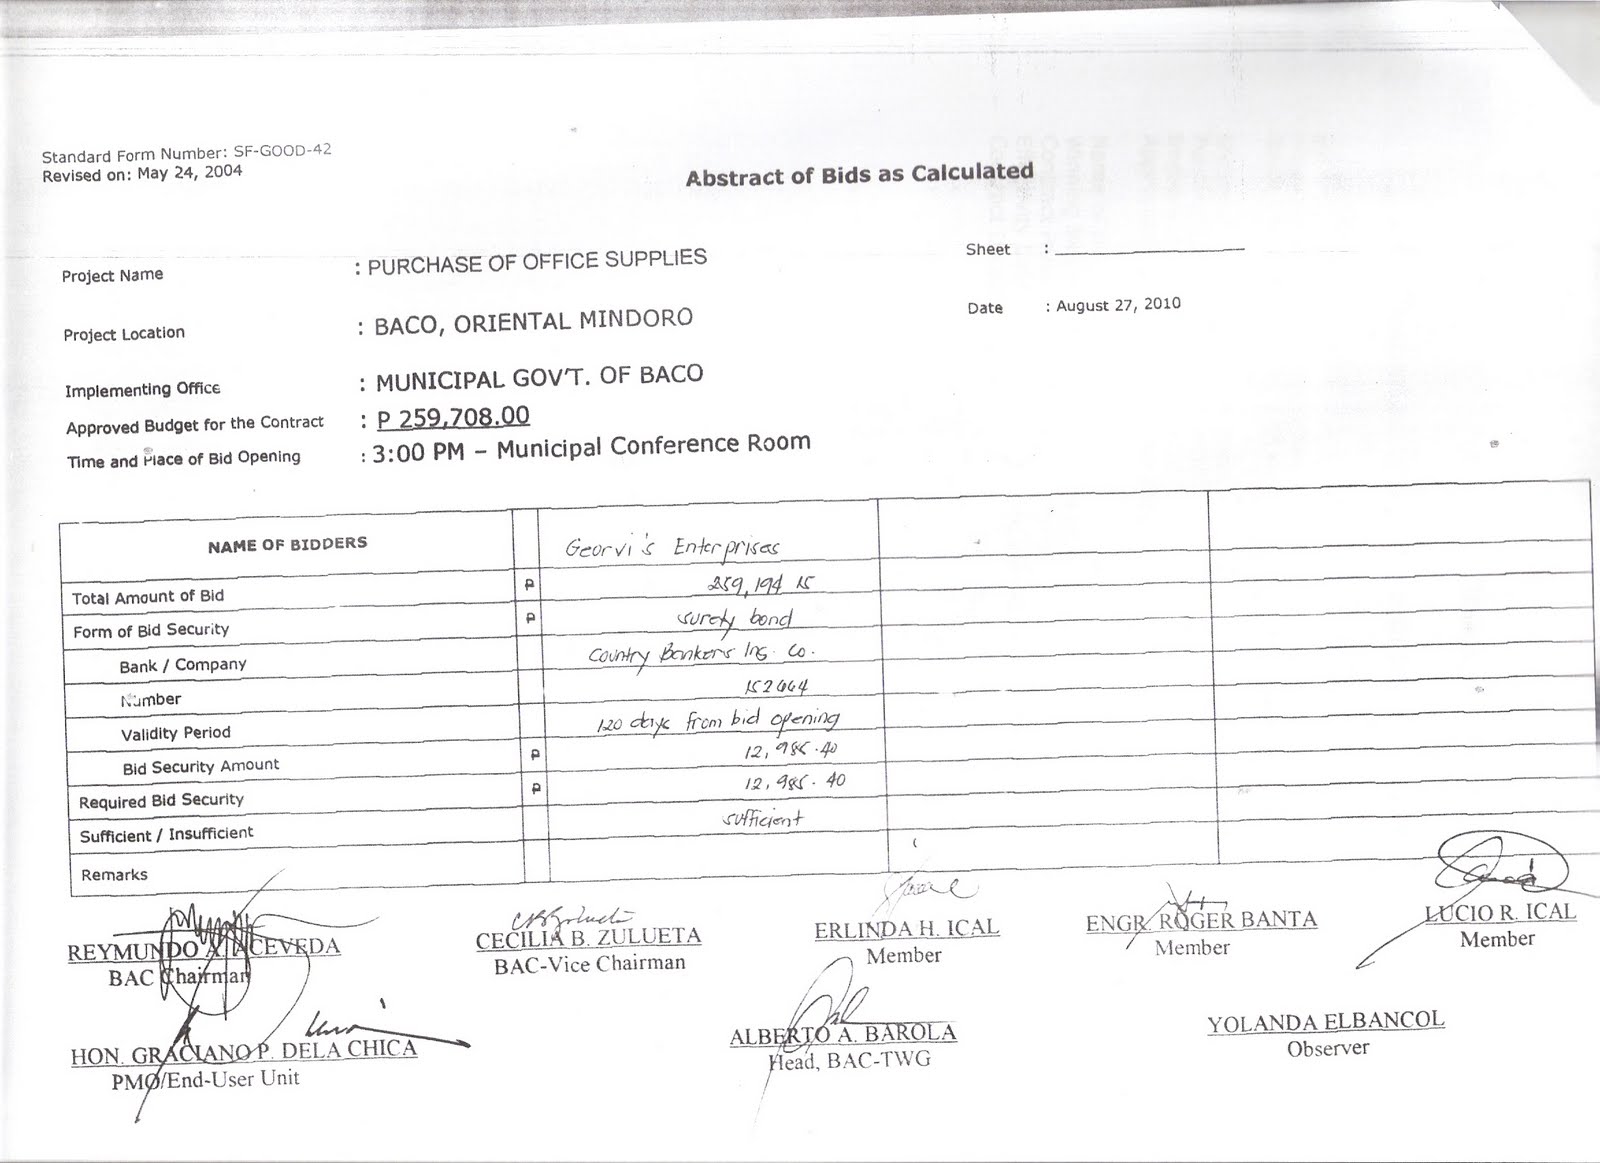 Standard Form Number: SF-GOOD-42
Revised on: May 24, 2004
Abstract of Bids as Calculated
Project Name : PURCHASE OF OFFICE SUPPLIES
Sheet :
Project Location : BACO, ORIENTAL MINDORO
Date : August 27, 2010
Implementing Office : MUNICIPAL GOV'T. OF BACO
Approved Budget for the Contract : P 259,708.00
Time and Place of Bid Opening : 3:00 PM – Municipal Conference Room
NAME OF BIDDERS Georvi's Enterprises
Total Amount of Bid ₱ 259,194 15
Form of Bid Security ₱ surety bond
Bank / Company Country Bankers Ins. Co.
Number
Validity Period 120 days from bid opening
Bid Security Amount ₱ 12,985.40
Required Bid Security ₱ 12,985.40
Sufficient / Insufficient sufficient
Remarks
REYMUNDO A. ACEVEDA
BAC Chairman
CECILIA B. ZULUETA
BAC-Vice Chairman
ERLINDA H. ICAL
Member
ENGR. ROGER BANTA
Member
LUCIO R. ICAL
Member
HON. GRACIANO P. DELA CHICA
PMO/End-User Unit
ALBERTO A. BAROLA
Head, BAC-TWG
YOLANDA ELBANCOL
Observer